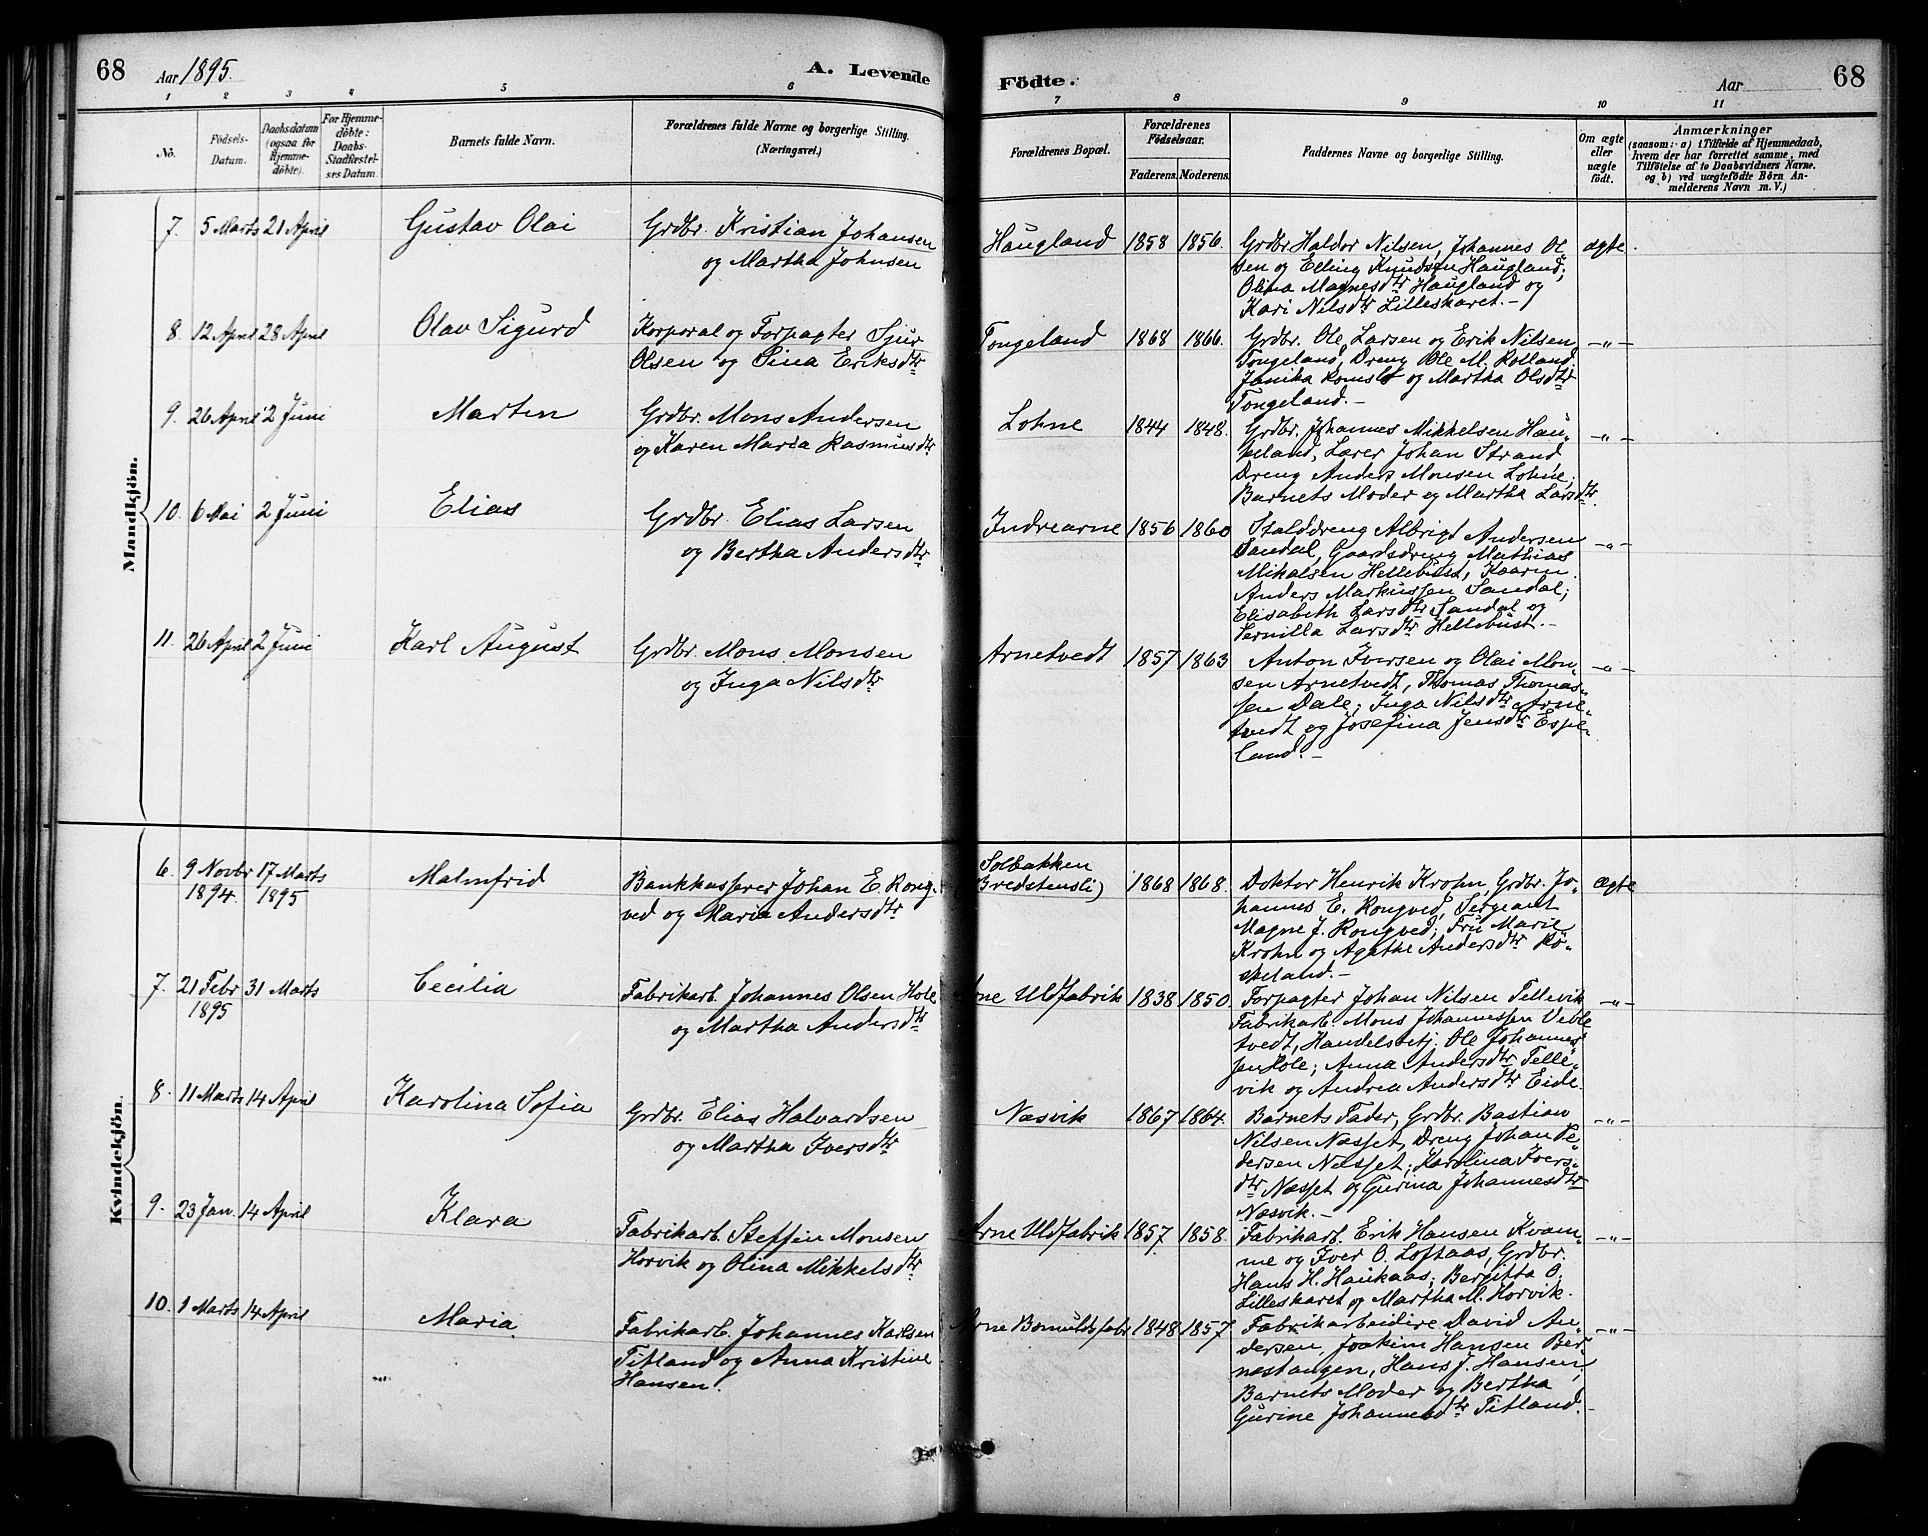 68 Aar 1895. A. Levende Födte. Aar 68
1 2 3 4 5 6 7 8 9 10 11
No. Födsels-Datum. Daabsdatum (ogsaa for Hjemme-döbte). For Hjemme-döbte: Daabs-Stadfæstel-ses Datum. Barnets fulde Navn. Forældrenes fulde Navne og borgerlige Stilling. (Næringsvei.) Forældrenes Bopæl. Forældrenes Födselsaar. Faderens. Moderens. Faddernes Navne og borgerlige Stilling. Om ægte eller uægte født. Anmærkninger
(saasom: a) i Tilfælde af Hjemmedaab,
hvem der har forrettet samme, med
Tilföielse af to Daabsvidners Navne.
og b) ved uægtefödte Börn An-
melderens Navn m. V.)
Mandkjön.
7. 5 Marts 21 April Gustav Olai Grdbr. Kristian Johansen
og Martha Johnsen
Haugland 1858 1856. Grdbr. Haldor Nilsen, Johannes Ol-
sen og Elling Knudsen Haugland;
Olina Magnesdtr Haugland og
Kari Nilsdtr Lilleskaret. –
ægte.
8. 12 April 28 April Olav Sigurd Korporal og Forpagter Sjur
Olsen og Sina Eriksdtr
Tongeland 1868 1866. Grdbr. Ole Larsen og Erik Nilsen
Tongeland, Dreng Ole M. Rolland;
Janika Romslo og Martha Olsdtr
Tongeland. –
–"–
9. 26 April 2 Juni Marten Grdbr. Mons Andersen
og Karen Maria Rasmusdtr
Lohne 1844 1848. Grdbr. Johannes Mikkelsen Hau-
keland, Lærer Johan Strand
Dreng Anders Monsen Lohne;
Barnets Moder og Martha Larsdtr.
–"–
10. 6 Mai 2 Juni Elias Grdbr. Elias Larsen
og Bertha Andersdtr
Indrearne 1856 1860 Stalddreng Albrigt Andersen
Sandal, Gaardsdreng Mathias
Mikalsen Hellebust,
Anders Markussen Sandal;
Elisabeth Larsdtr Sandal og
Pernilla Larsdtr Hellebust. –
–"–
11. 26 April 2 Juni Karl August Grdbr. Mons Monsen
og Inga Nilsdtr
Arnetvedt 1857 1863 Anton Iversen og Olai Mon-
sen Arnetvedt, Thomas Thomas-
sen Dale; Inga Nilsdtr Arne-
tvedt og Josefina Jensdtr Espe-
land. –
–"–
Kvindekjön.
6. 9 Novbr 1894. 17 Marts 1895 Malmfrid Bankkasserer Johan E. Rong-
ved og Maria Andersdtr
Solbakken
(Bredstensli) 1868 1868. Doktor Henrik Krohn, Grdbr. Jo-
hannes E. Rongved, Sergeant
Magne J. Rongved; Fru Marie
Krohn og Agathe Andersdtr Rö-
skeland. –
Ægte
7. 21 Febr 1895 31 Marts Cecilia Fabrikarb. Johannes Olsen Hole
og Martha Andersdtr
Arne Uldfabrik 1838 1850. Forpagter Johan Nilsen Tellevik
Fabrikarb. Mons Johannessen Veble-
tvedt, Handelsbtj. Ole Johannes-
sen Hole; Anna Andersdtr Telle-
vik og Andrea Andersdtr Eide.
–"–
8. 11 Marts 14 April Karolina Sofia Grdbr. Elias Halvardsen
og Martha Iversdtr
Næsvik 1867 1864. Barnets Fader, Grdbr. Bastian
Nilsen Næsset, Dreng Johan Pe-
dersen Næsset; Karolina Ivers-
dtr Næsset og Gurina Johannesdtr
Næsvik. –
–"–
9. 23 Jan. 14 April Klara Fabrikarb. Steffen Monsen
Horvik og Olina Mikkelsdtr
Arne Uldfabrik 1857. 1858. Fabrikarb. Erik Hansen Kvam-
me og Iver O. Loftaas, Grdbr.
Hans H. Haukaas; Bergitta O.
Lilleskaret og Martha M. Horvik.
–"–
10. 1 Marts 14 April Maria. Fabrikarb. Johannes Karlsen
Titland og Anna Kristine
Hansen.
Arne Bomuldsfabr 1848 1857. Fabrikarbeidere David An-
dersen, Joakim Hansen Ber-
nestangen, Hans J. Hansen;
Barnets Moder og Bertha
Gurine Johannesdtr Titland.
–"–